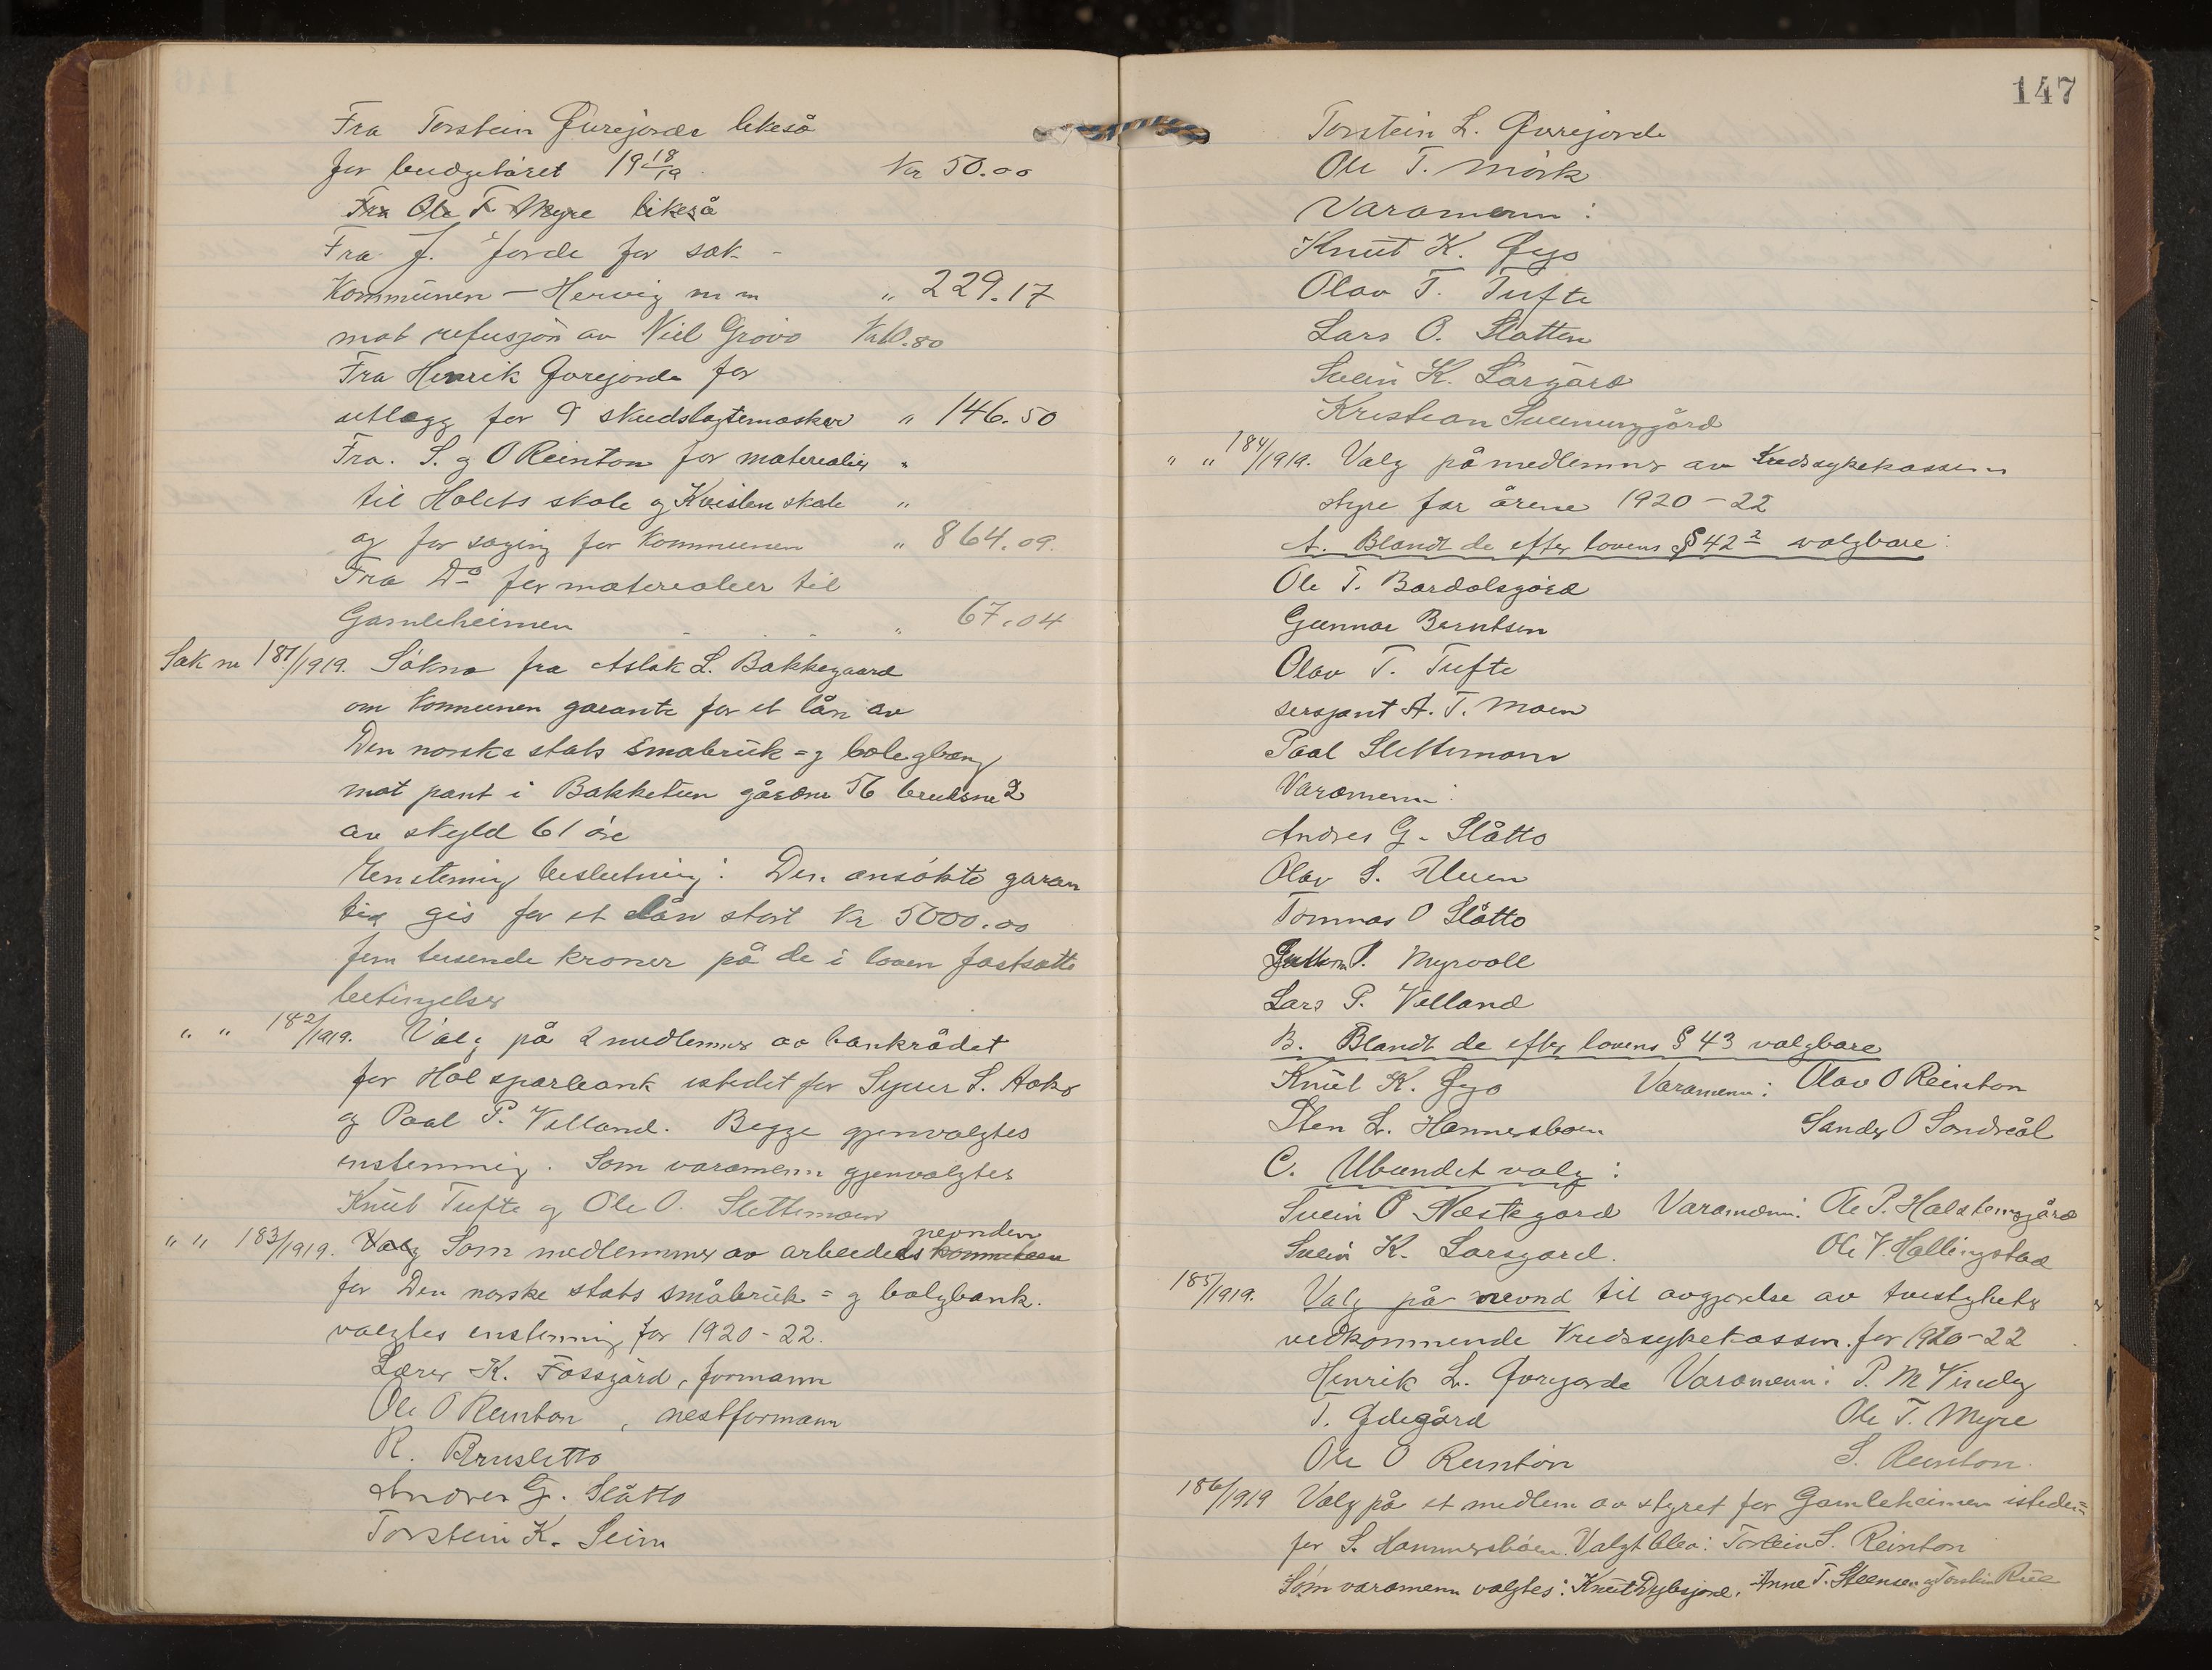 Fra Torstein Øvrejorde likeså
for budgetåret 19 18/19 Kr 50.00
Fra Ole T Myre likeså
Fra J. Jorde for sak
Kommunen – Hervig m m " 229.17
mot refusjon av Niel Grøvo
Fra Henrik Øvrejorde for
utlegg for 9 skudsløytemasker " 146.50
Fra. S. og O Reinton for materealier "
til Holets skole og Kvislen skole "
og for saging for Kommunen " 864.09.
Fra Do for materealier til
Gamleheimen " 67.04
Sak nr 181/1919. Søkna fra Aslak L. Bakkegaard
om kommunen garante for et lån av
Den norske stats småbruk- og boligbank
mot pant i Bakketun gårdnr 56 bruksnr 2
av skyld 61 øre
Enstemmig beslutning: Den ansøkte garan
tia gis for et lån stort kr 5000.00
fem tusende kroner på de i loven fastsatte
betingelser
" " 182/1919. Valg på 2 medlemmer av bankrådet
for Hol sparebank istedet for Syver S. Aaker
og Paal P. Villand. Begge gjenvalgtes
enstemmig. Som varamenn gjenvalgtes
Knut Tufte og Ole O. Slettemoen
nevnden
" " 183/1919. Valg Som medlemmer av arbeiders komiteen
for Den norske stats småbruk= og boligbank.
valgtes enstemmig for 1920-22.
Lærer K. Fossgård, formann
Ole O Reinton, nestformann
R. Brusletto
Andres G. Slåtto
Torstein K. Seim
147
Torstein L. Øvrejorde
Ole T. Mørk
Varamenn:
Knut K. Øyo
Olav T. Tufte
Lars O. Slatten
Svein K. Larsgård
Kristian Sveinunggård
" " 184/1919. Valg på medlemmer av Kredssykekassens
styre for årene 1920-22
A. Blandt de efter lovens § 42 2 valgbare:
Ole T. Bardølsgård
Gunnar Berntsen
Olav T. Tufte
sersjant A. T. Moen
Paal Slettemoen
Varamenn:
Andres G. Slåtto
Olav S. Uluen
Tommas O Slåtto
Guttorm P. Myrvoll
Lars P. Villand
B. Blandt de efter lovens § 43 valgbare
Knut K. Øyo Varamenn: Olav O Reinton
Sten L. Hammersboen Sander O Sondreål
C. Ubundet valg:
Svein O Næstegard Varamenn: Ole P. Halstensgård
Svein K. Larsgard. Ole V. Hallingstad
185/1919. Valg på nevnd til avgjørelse av tvistigheter
vedkommende Kredssykekassen for 1920-22
Henrik L. Øvrejorde Varamenn: P. M Vindeg
T. Ødegård Ole T. Myre
Ole O Reinton S. Reinton.
186/1919 Valg på et medlem av styret for Gamleheimen isteden=
for S. Hammersbøen. Valgt blev: Torstein S. Reinton
Som varamenn valgtes: Knut Dybsjord, Anne T. Steensen og Torstein Rue